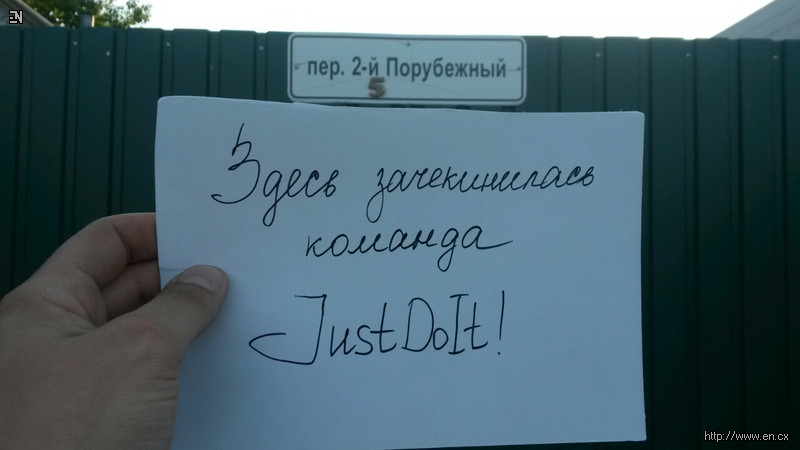 EN
пер. 2-й Порубежный
5
Здесь зачекинилась
команда
JustDoIt!
http://www.en.cx